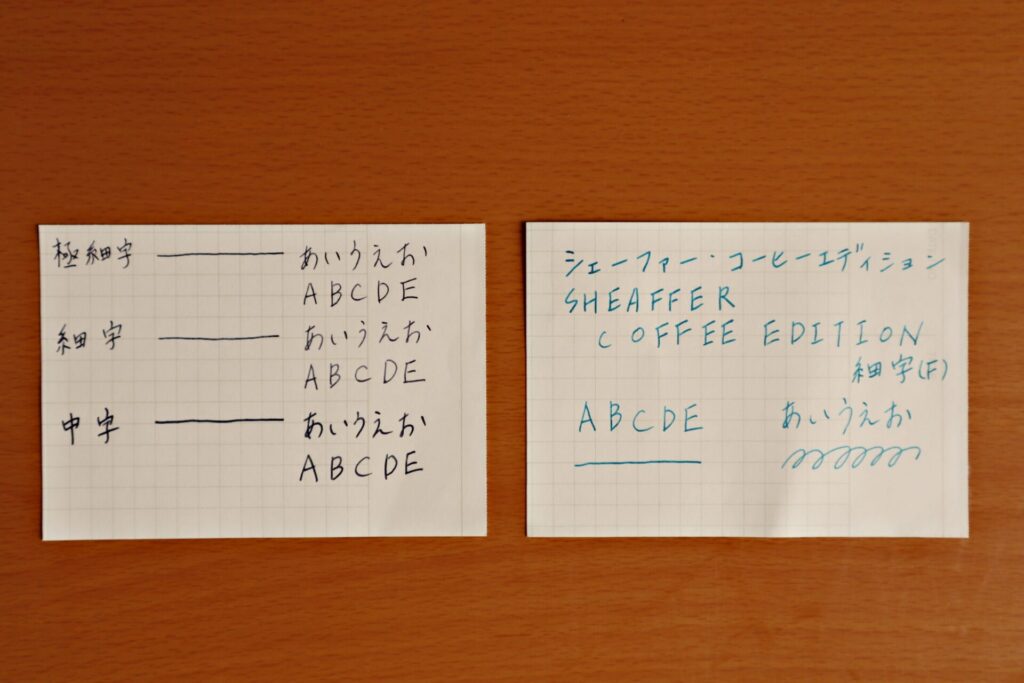 極細字 あいうえお
ABCDE
細字 あいうえお
ABCDE
中字 あいうえお
ABCDE
シェーファー・コーヒーエディション
SHEAFFER
COFFEE EDITION
細字(F)
ABCDE あいうえお